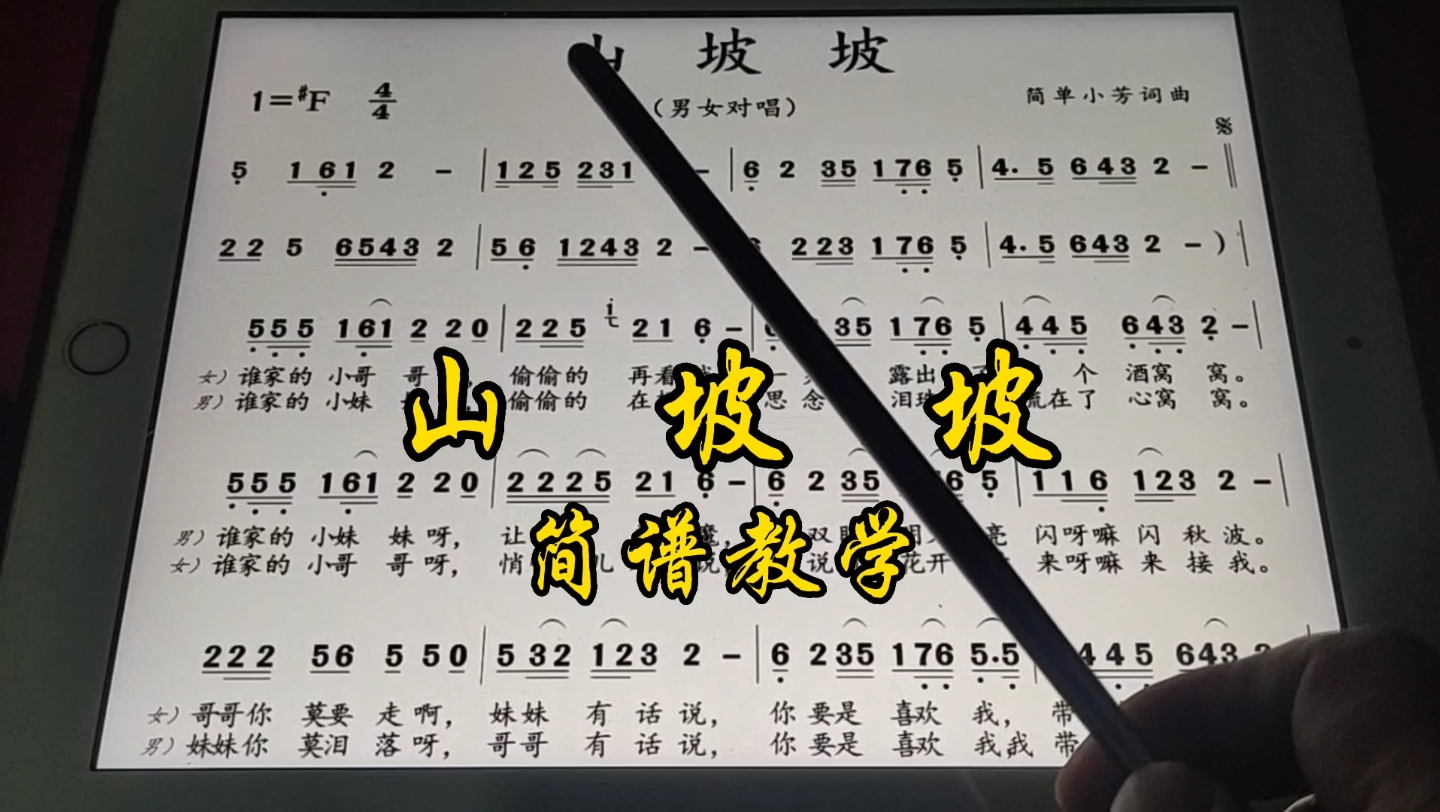 山 坡 坡
1=#F 4/4 （男女对唱） 简单小芳词曲
5 161 2 - | 125 231 - | 6 2 35 176 5 | 4. 5 643 2 - ‖
22 5 6543 2 | 56 1243 2 - 223 176 5 | 4.5 643 2 - ) |
555 161 2 220 | 225 i 21 6 - 35 176 5 | 445 643 2 - |
女）谁家的 小哥 哥 偷偷的 再看 露出 个 酒窝 窝。
男）谁家的 小妹 偷偷的 在 思念 泪珠 流在了 心窝 窝。
山 坡 坡
555 161 2 220 | 2225 21 6 - 6 2 35 6 5 | 116 123 2 - |
男）谁家的 小妹 妹呀， 让 魔， 双 亮 闪呀嘛 闪 秋 波。
女）谁家的 小哥 哥呀， 悄 儿 说 说 花开 来呀嘛 来 接 我。
简谱教学
222 56 5 50 | 532 123 2 - | 6 235 176 5.5 445 643
女）哥哥你 莫要 走啊， 妹妹 有 话 说， 你 要是 喜欢 我， 带
男）妹妹你 莫泪 落呀， 哥哥 有 话 说， 你 要是 喜欢 我我 带